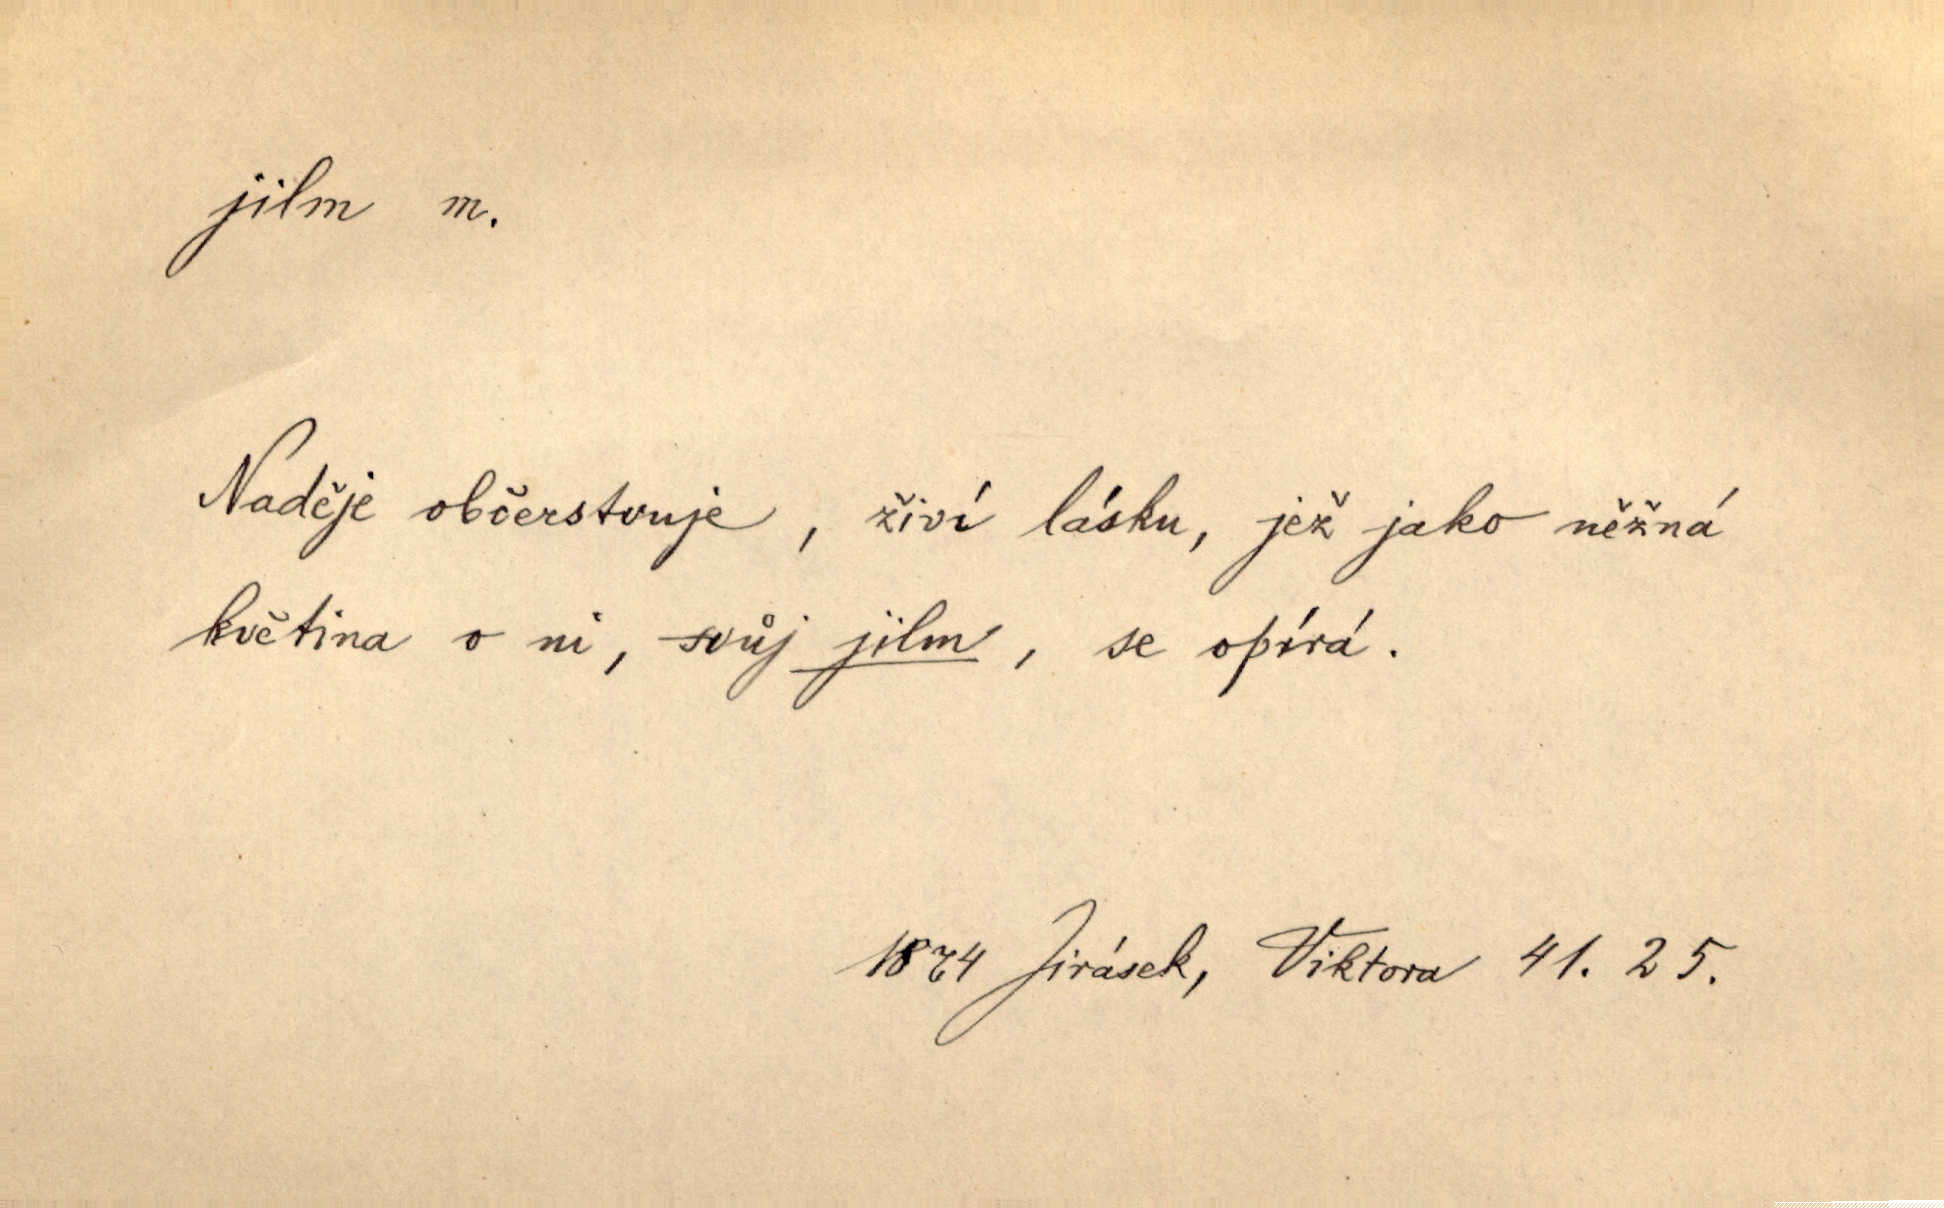 jilm m.
Naděje občerstvuje, živí lásku, jež jako něžná
květina o ni, svůj jilm, se opírá.
1874 Jirásek, Viktora 41. 25.